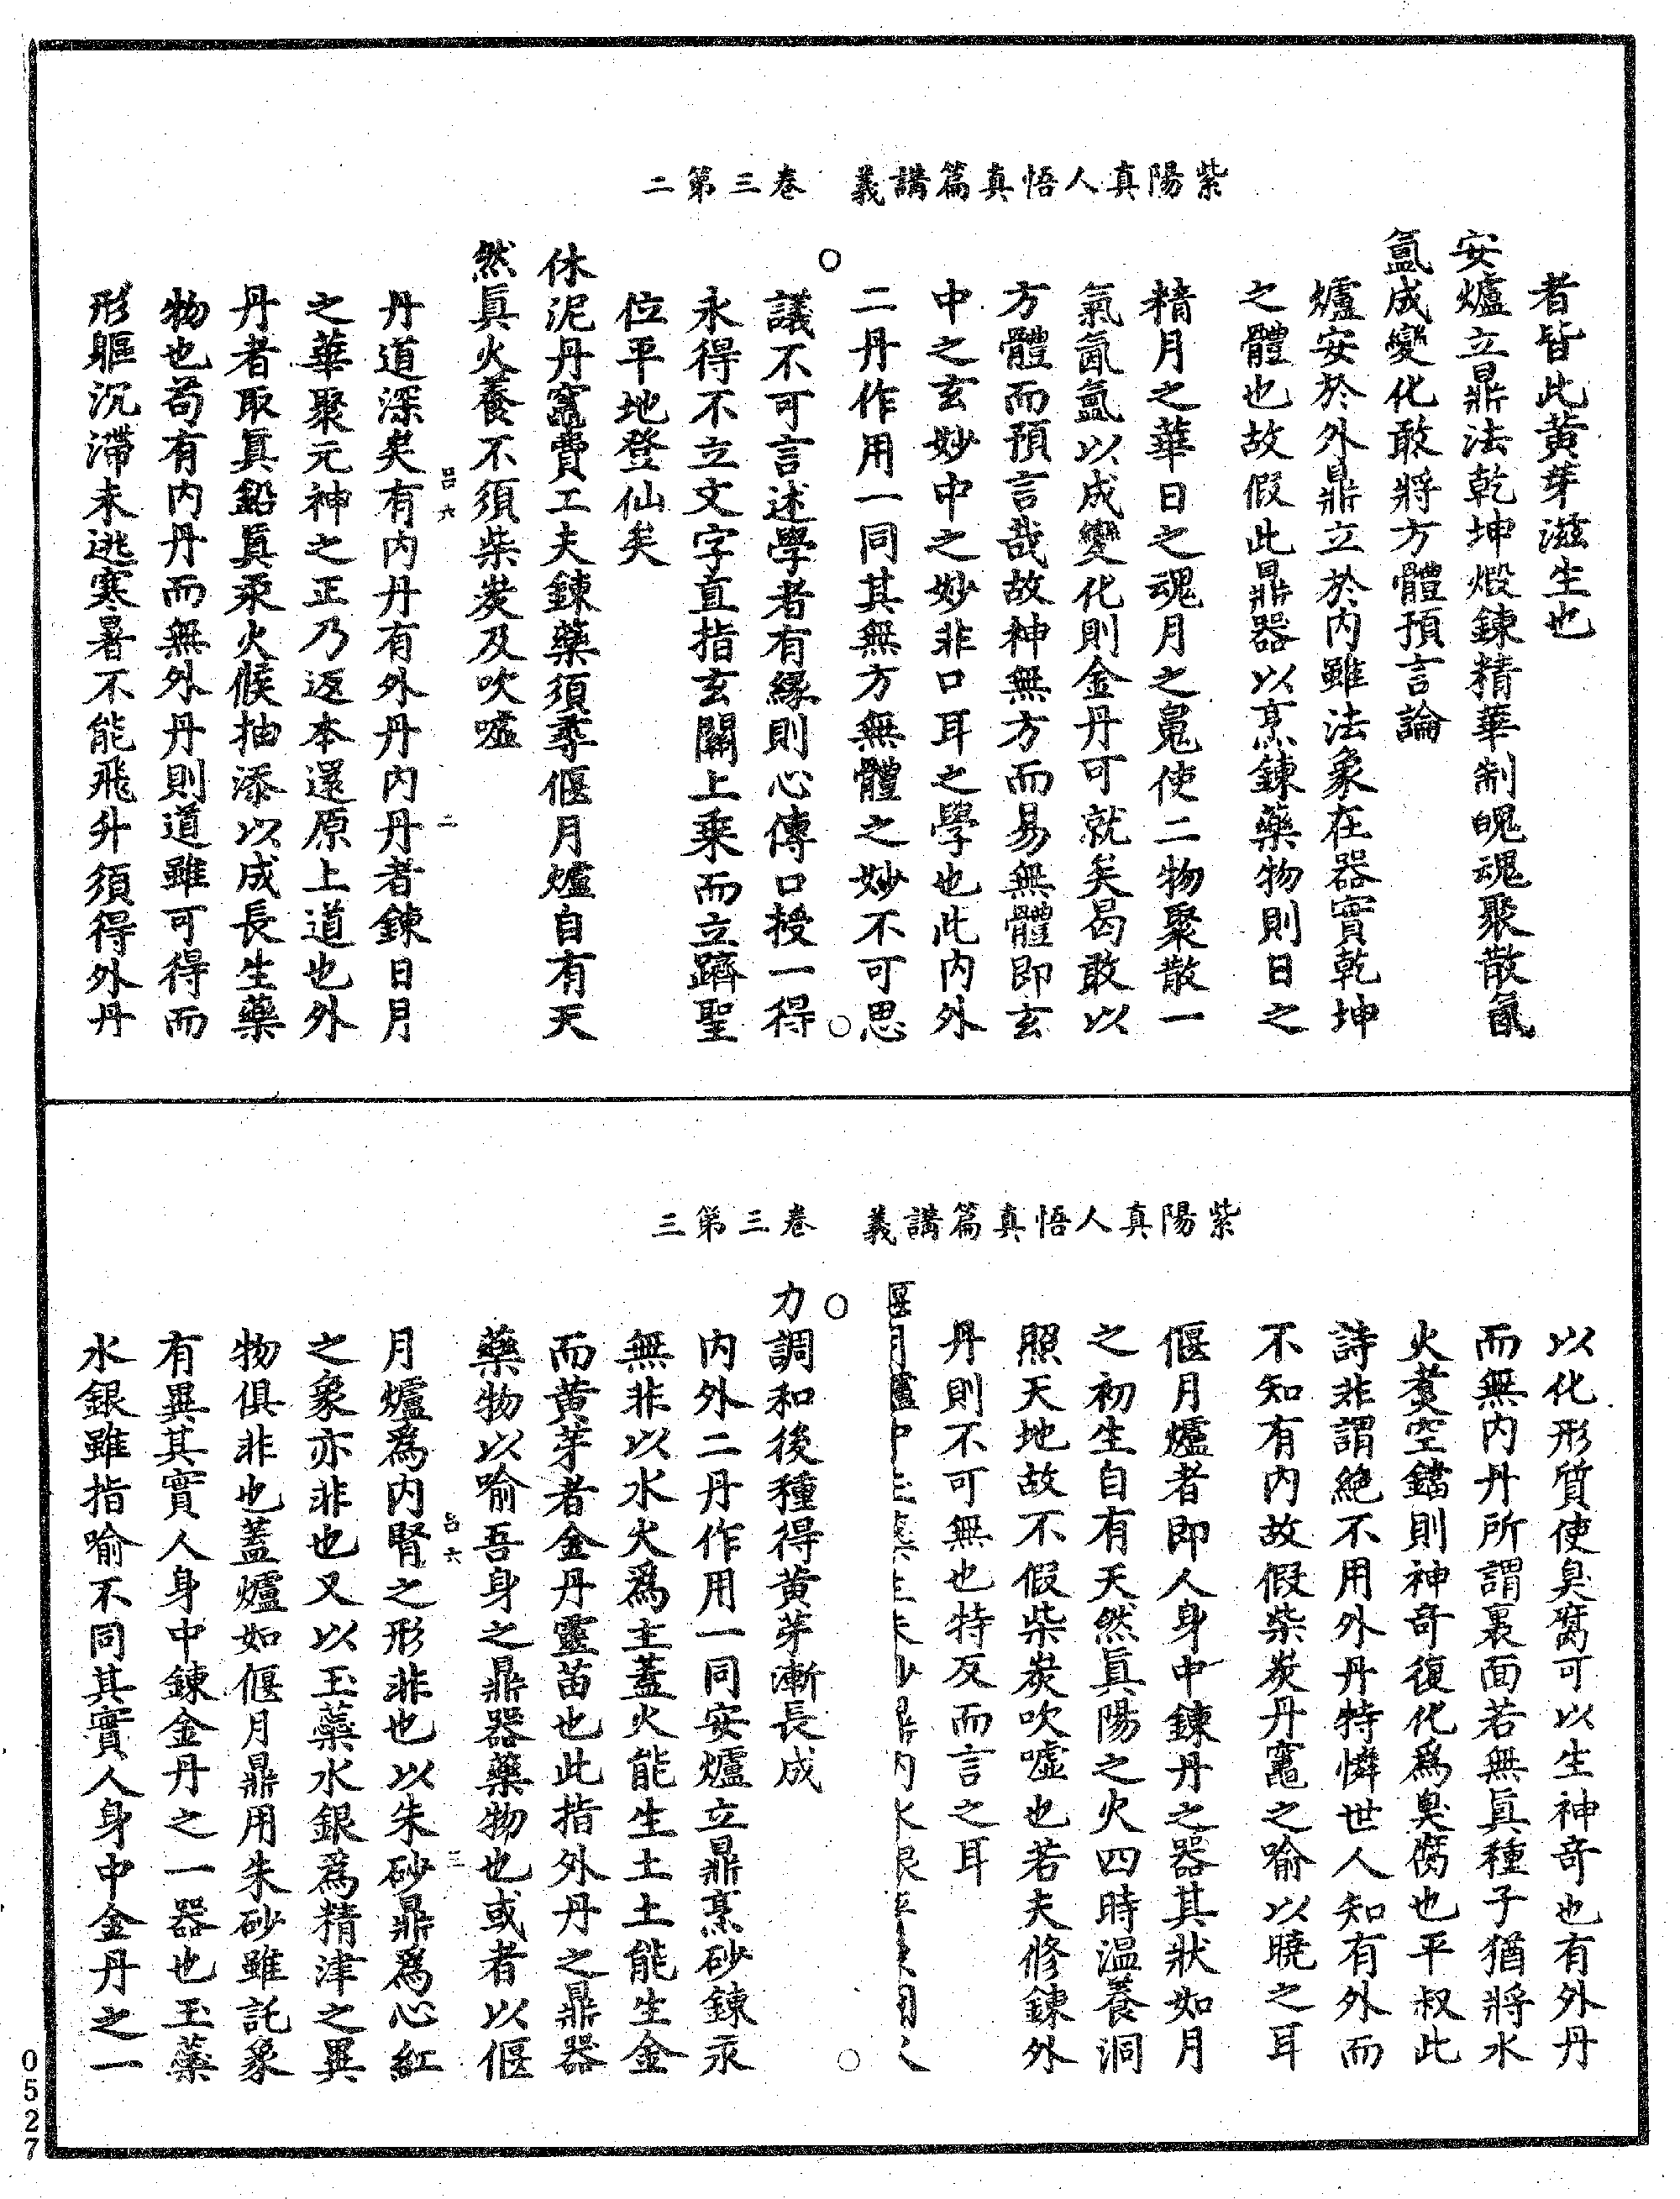 紫陽真人悟真篇講義　卷三第二
者皆此黃芽滋生也
安爐立鼎法乾坤煅鍊精華制魄魂聚散氤
氳成變化敢將方體預言論
爐安於外鼎立於內雖法象在器實乾坤
之體也故假此鼎器以烹鍊藥物則日之
精月之華日之魂月之魄使二物聚散一
氣氤氳以成變化則金丹可就矣曷敢以
方體而預言哉故神無方而易無體即玄
中之玄妙中之妙非口耳之學也此內外
二丹作用一同其無方無體之妙不可思
議不可言述學者有緣則心傳口授一得
永得不立文字直指玄關上乘而立躋聖
位平地登仙矣
休泥丹竈費工夫鍊藥須尋偃月爐自有天
然真火養不須柴炭及吹噓
丹道深矣有內丹有外丹內丹者鍊日月
之華聚元神之正乃返本還原上道也外
丹者取真鉛真汞火候抽添以成長生藥
物也苟有內丹而無外丹則道雖可得而
形軀沉滯未逃寒暑不能飛升須得外丹
呂六
二
紫陽真人悟真篇講義　卷三第三
以化形質使臭腐可以生神奇也有外丹
而無內丹所謂裏面若無真種子猶將水
火煑空鐺則神奇復化爲臭腐也平叔此
詩非謂絶不用外丹特憐世人知有外而
不知有內故假柴炭丹竈之喻以曉之耳
偃月爐者即人身中鍊丹之器其狀如月
之初生自有天然真陽之火四時溫養洞
照天地故不假柴炭吹噓也若夫修鍊外
丹則不可無也特反而言之耳
偃月爐中
力調和後種得黃芽漸長成
內外二丹作用一同安爐立鼎烹砂鍊汞
無非以水火爲主蓋火能生土土能生金
而黃芽者金丹靈苗也此指外丹之鼎器
藥物以喻吾身之鼎器藥物也或者以偃
月爐爲內腎之形非也以朱砂鼎爲心紅
之象亦非也又以玉蘂水銀爲精津之異
物俱非也蓋爐如偃月鼎用朱砂雖託象
有異其實人身中鍊金丹之一器也玉蘂
水銀雖指喻不同其實人身中金丹之一
呂六
三
0527